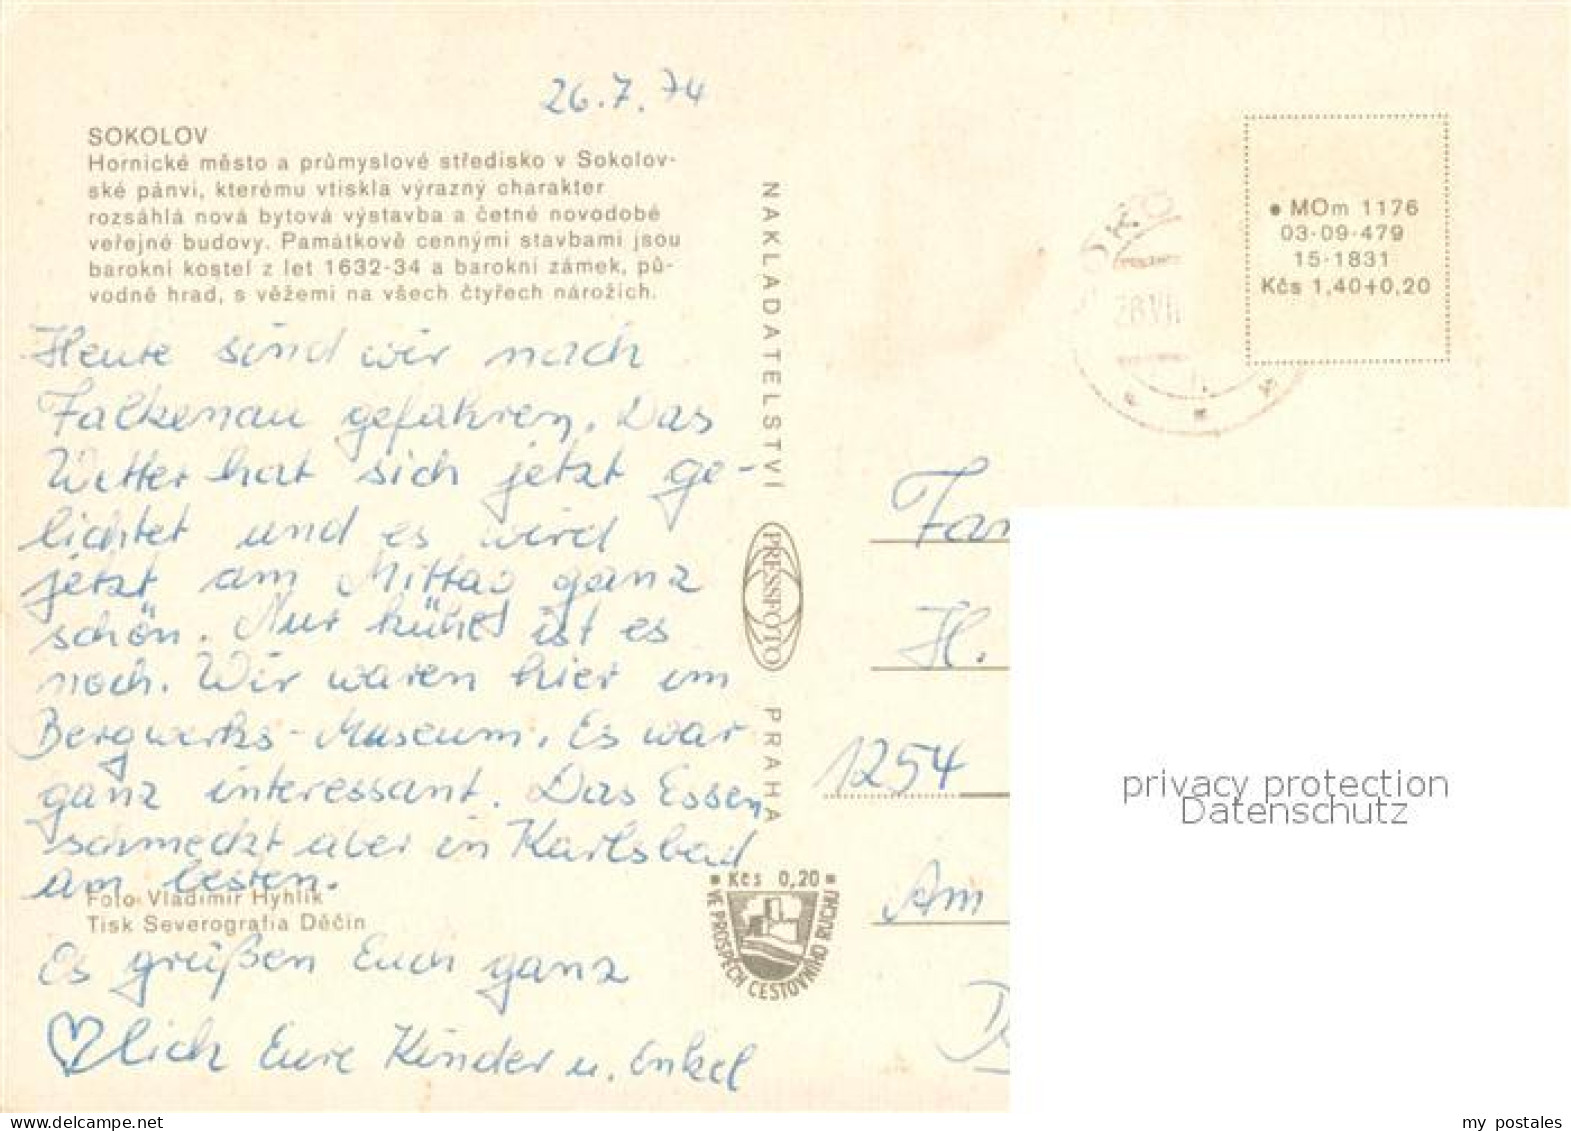 26.7.74
SOKOLOV
Hornické město a průmyslové středisko v Sokolov-
ské pánvi, kterému vtiskla výrazný charakter
rozsáhlá nová bytová výstavba a četné novodobé
veřejné budovy. Památkově cennými stavbami jsou
barokní kostel z let 1632-34 a barokní zámek, pů-
vodně hrad, s věžemi na všech čtyřech nárožích.
Heute sind wir nach
Falkenau gefahren. Das
Wetter hat sich jetzt ge-
lichtet und es wird
jetzt am Mittag ganz
schön. Nur kühl ist es
noch. Wir waren hier im
Bergwerks-Museum. Es war
ganz interessant. Das Essen
schmeckt aber in Karlsbad
am besten.
Foto Vladimír Hyhlík
Tisk Severografia Děčín
Es grüßen Euch ganz
♡lich Eure Kinder u. Enkel
NAKLADATELSTVÍ
PRESSFOTO
PRAHA
Kčs 0,20
VE PROSPĚCH CESTOVNÍHO RUCHU
28.VII
• MOm 1176
03-09-479
15-1831
Kčs 1,40+0,20
Fam
H.
1254
Am
privacy protection
Datenschutz
my postales
©Copyright bartko-reher.com